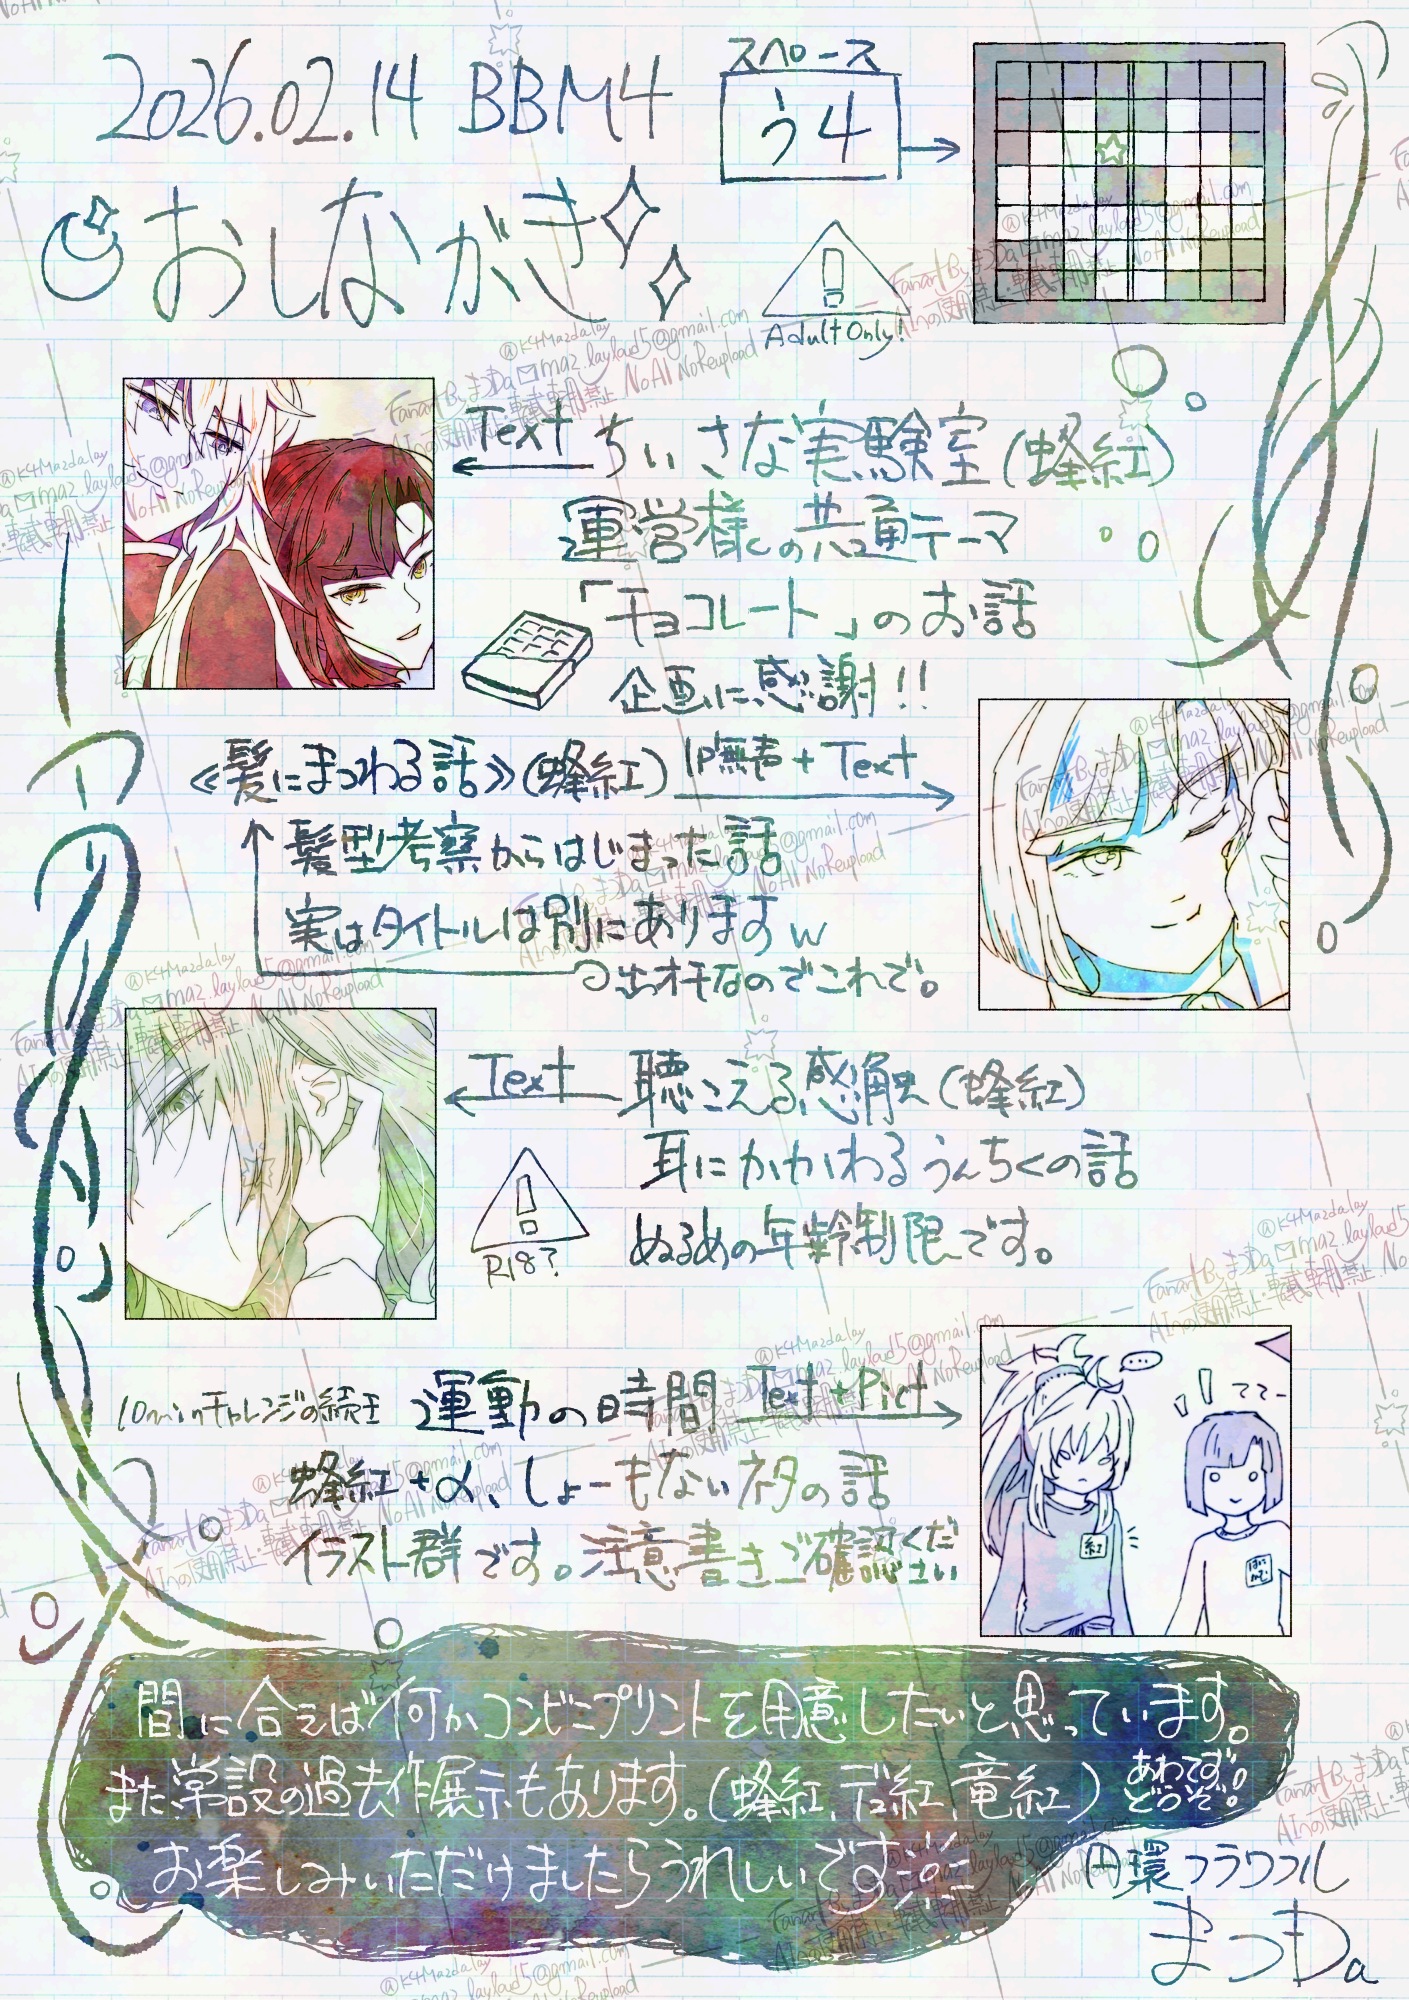 2026.02.14 BBM4
スペース
う4
おしながき
Adult Only!
Text ちいさな実験室(蜂紅)
運営様の共通テーマ
「チョコレート」のお話
企画に感謝!!
≪髪にまつわる話≫(蜂紅) 1P無声+Text
髪型考察からはじまった話
実はタイトルは別にありますw
出オチなのでこれで。
Text 聴こえる感触(蜂紅)
耳にかかわるうんちくの話
R18?
ぬるめの年齢制限です。
10minチャレンジの続き 運動の時間 Text+Pict
蜂紅+α、しょーもないネタの話
イラスト群です。注意書きご確認ください
...
紅
間に合えば何かコンビニプリントを用意したいと思っています。
また常設の過去作展示もあります。(蜂紅、デ紅、竜紅)あわてずどうぞ!
お楽しみいただけましたらうれしいです
円環フラウフル
まつDa
FanartBy まつDa @K4Mazdalay maz.laylaud5@gmail.com
AIへの使用禁止・転載転用禁止 NoAI NoReupload